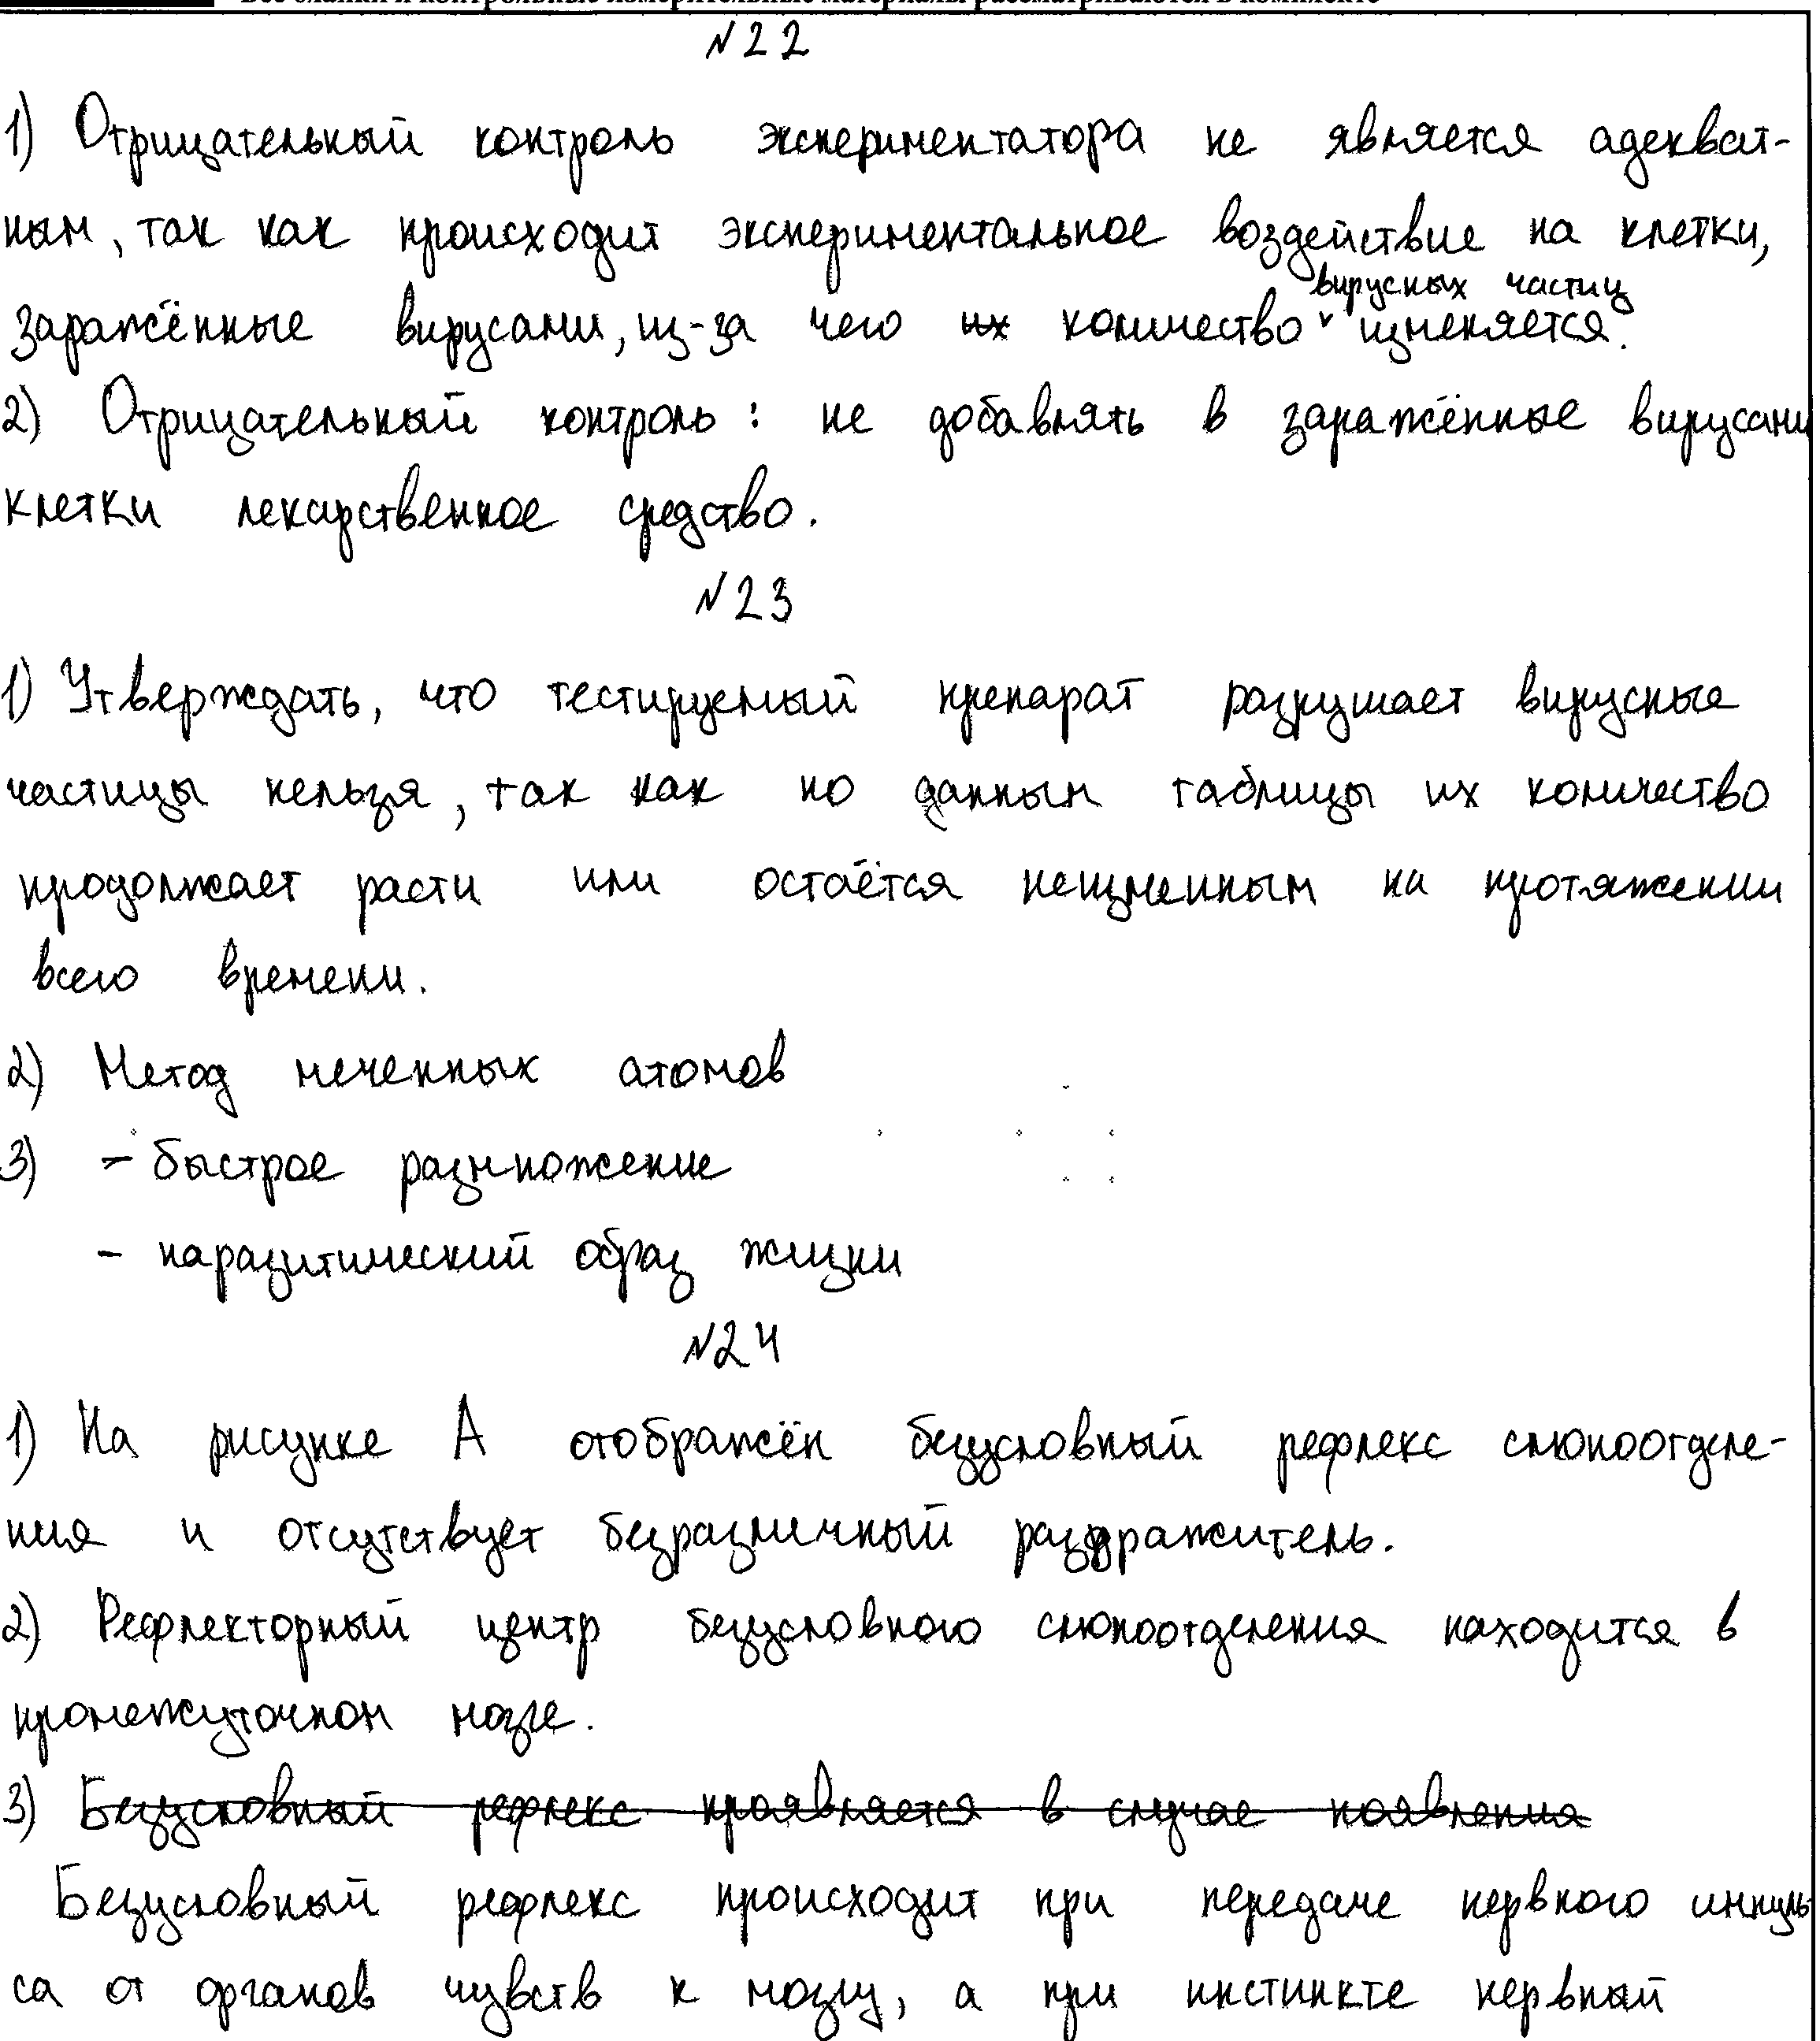 №22
1) Отрицательный контроль экспериментатора не является адекват-
ным, так как происходит экспериментальное воздействие на клетки,
вирусных частиц
заражённые вирусами, из-за чего их количество изменяется.
2) Отрицательный контроль: не добавлять в заражённые вирусами
клетки лекарственное средство.
№23
1) Утверждать, что тестируемый препарат разрушает вирусные
частицы нельзя, так как по данным таблицы их количество
продолжает расти или остаётся неизменным на протяжении
всего времени.
2) Метод меченных атомов
3) - быстрое размножение
- паразитический образ жизни
№24
1) На рисунке А отображён безусловный рефлекс слюноотделе-
ния и отсутствует безразличный раздражитель.
2) Рефлекторный центр безусловного слюноотделения находится в
промежуточном мозге.
3) Безусловный рефлекс проявляется в случае появления
Безусловный рефлекс происходит при передаче нервного импуль
са от органов чувств к мозгу, а при инстинкте нервный